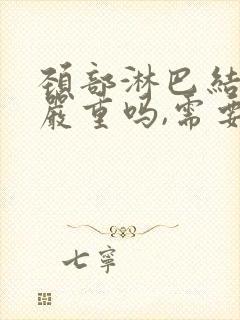 颈部淋巴结
严重吗,需要
七寧